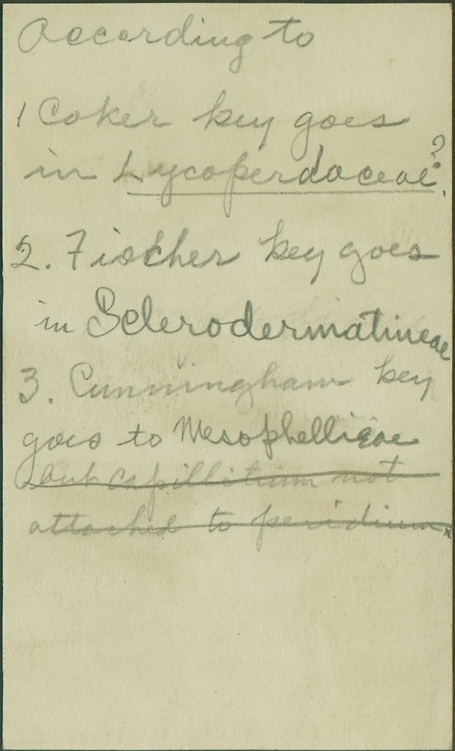 According to
1 Coker key goes
in Lycoperdaceae?.
2. Fischer key goes
in Sclerodermatineae
3. Cunningham key
goes to Mesophelliaeae
but capillitium not
attached to peridium.